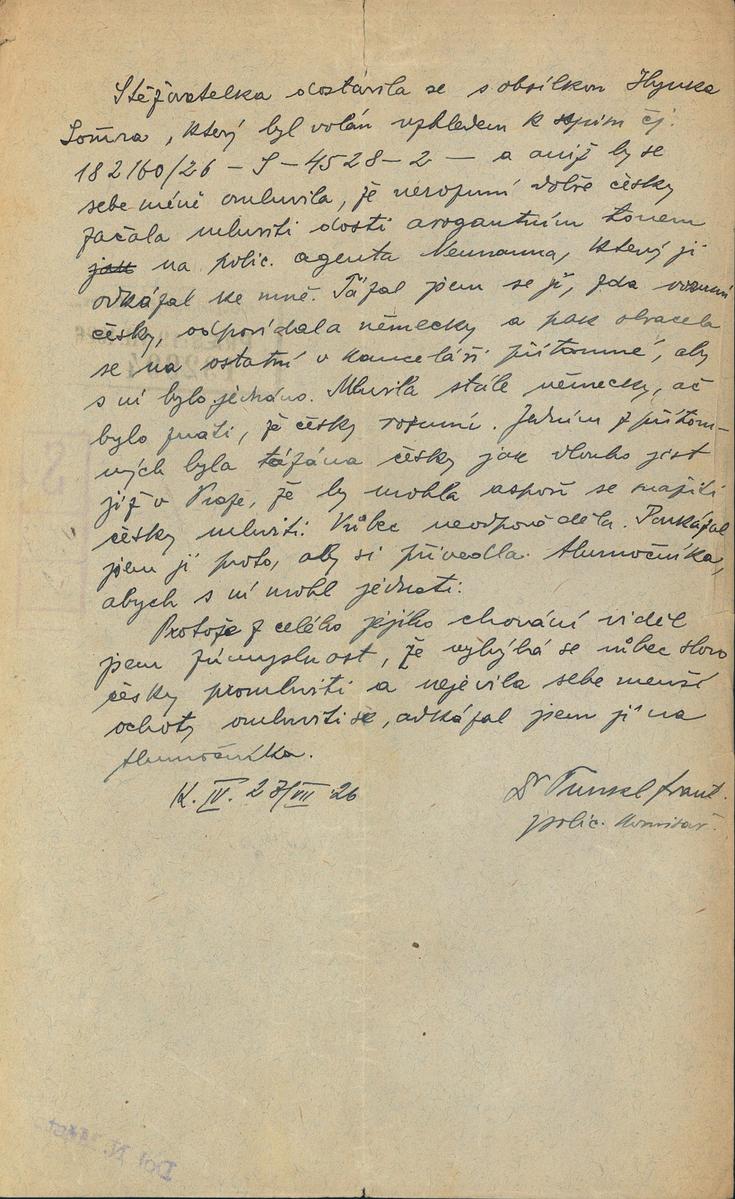 Stěžovatelka dostavila se s obsílkou Hynka
Somra, který byl volán vzhledem k spisu čj.
182160/26 – S – 4528 – 2 – a aniž by se
sebe méně omluvila, že nerozumí dobře česky
začala mluviti dosti arogantním tonem
jak na polic. agenta Neumanna, který ji
odkázal ke mně. Tázal jsem se jí, zda rozumí
česky, odpovídala německy a pak obracela
se na ostatní v kanceláři přítomné, aby
s ní bylo jednáno. Mluvila stále německy, ač
bylo znáti, že česky rozumí. Jedním z přítom-
ných byla tázána česky jak dlouho jest
již v Praze, že by mohla aspoň se snažiti
česky mluviti. Vůbec neodpověděla. Poukázal
jsem jí proto, aby si přivedla tlumočníka,
abych s ní mohl jednati.
Protože z celého jejího chování viděl
jsem zúmyslnost, že vyhýbá se vůbec slovo
česky promluviti a nejevila sebe menší
ochoty omluviti se, odkázal jsem ji na
tlumočníka.
K. IV. 27/VII 26
Dr
polic. komisař.